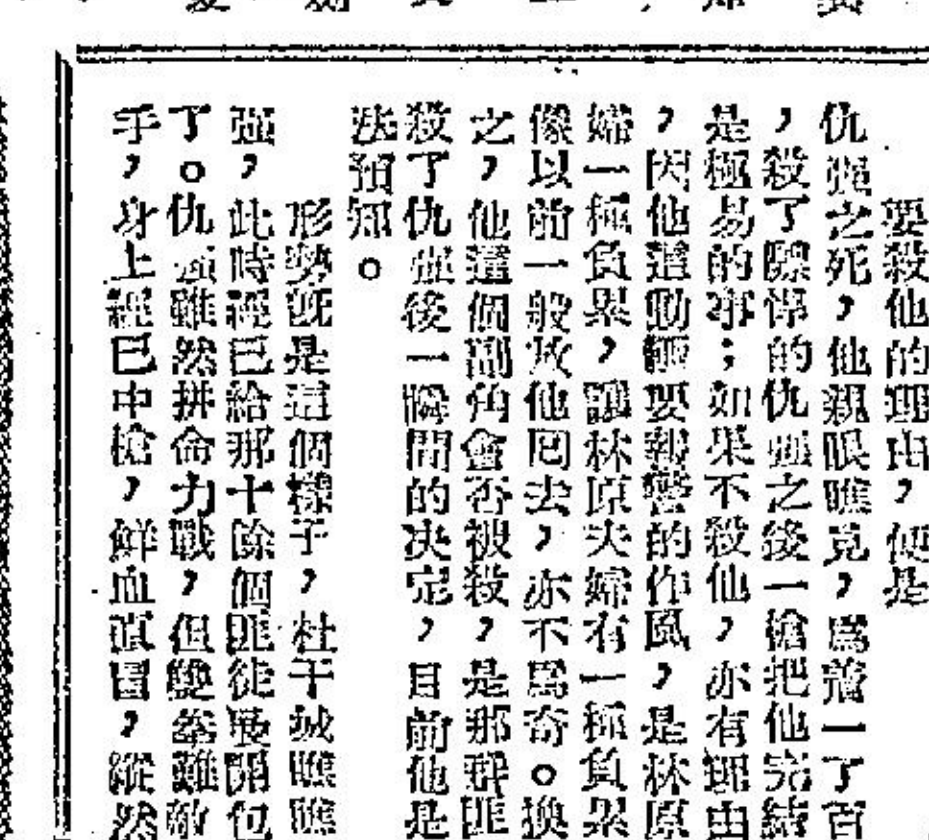 要殺他的理由，便是
仇强之死，他親眼瞧見，爲着一了百
，殺了驃悍的仇强之後一槍把他完結
是極易的事；如果不殺他，亦有理由
，因他這動輒要報警的作風，是林原
婦一種負累，讓林原夫婦有一種負累
像以前一般放他回去，亦不爲奇。換
之，他這個副角會否被殺，是那群匪
殺了仇强後一瞬間的决定，目前他是
法預知。
形勢旣是這個樣子，杜干城瞧瞧
强，此時經已給那十餘個匪徒展開包
了。仇强雖然拼命力戰，但雙拳難敵
手，身上經已中槍，鮮血直冒，縱然